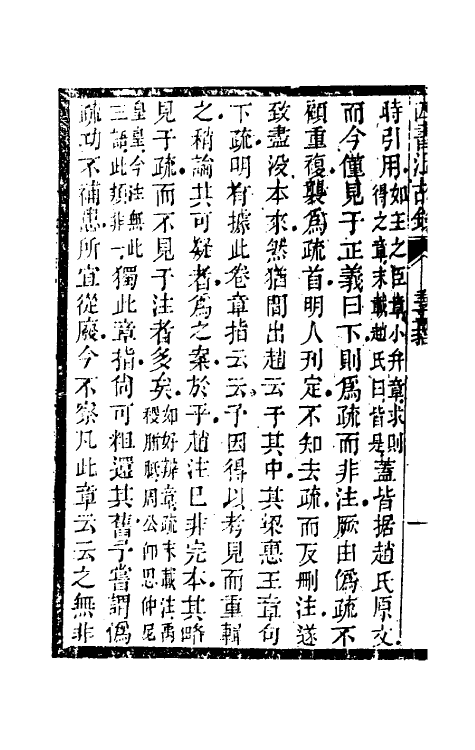 時引用如王之臣章小弁章求則得之章末載趙氏曰皆是蓋皆据趙氏原文
而今僅見于正義曰下則爲疏而非注厥由僞疏不
顧重複襲爲疏首明人刊定不知去疏而反刪注遂
致盡没本來然猶間出趙云于其中其梁惠王章句
下疏明有據此卷章指云云予因得以考見而重輯
之稍論其可疑者爲之案於乎趙注已非完本其略
見于疏而不見于注者多矣如好辯章疏末載注禹稷胼胝周公仰思仲尼
皇皇今注無此三語此類非一獨此章指尙可粗還其舊予嘗謂僞
疏功不補患所宜從廢今不察凡此章云云之無非